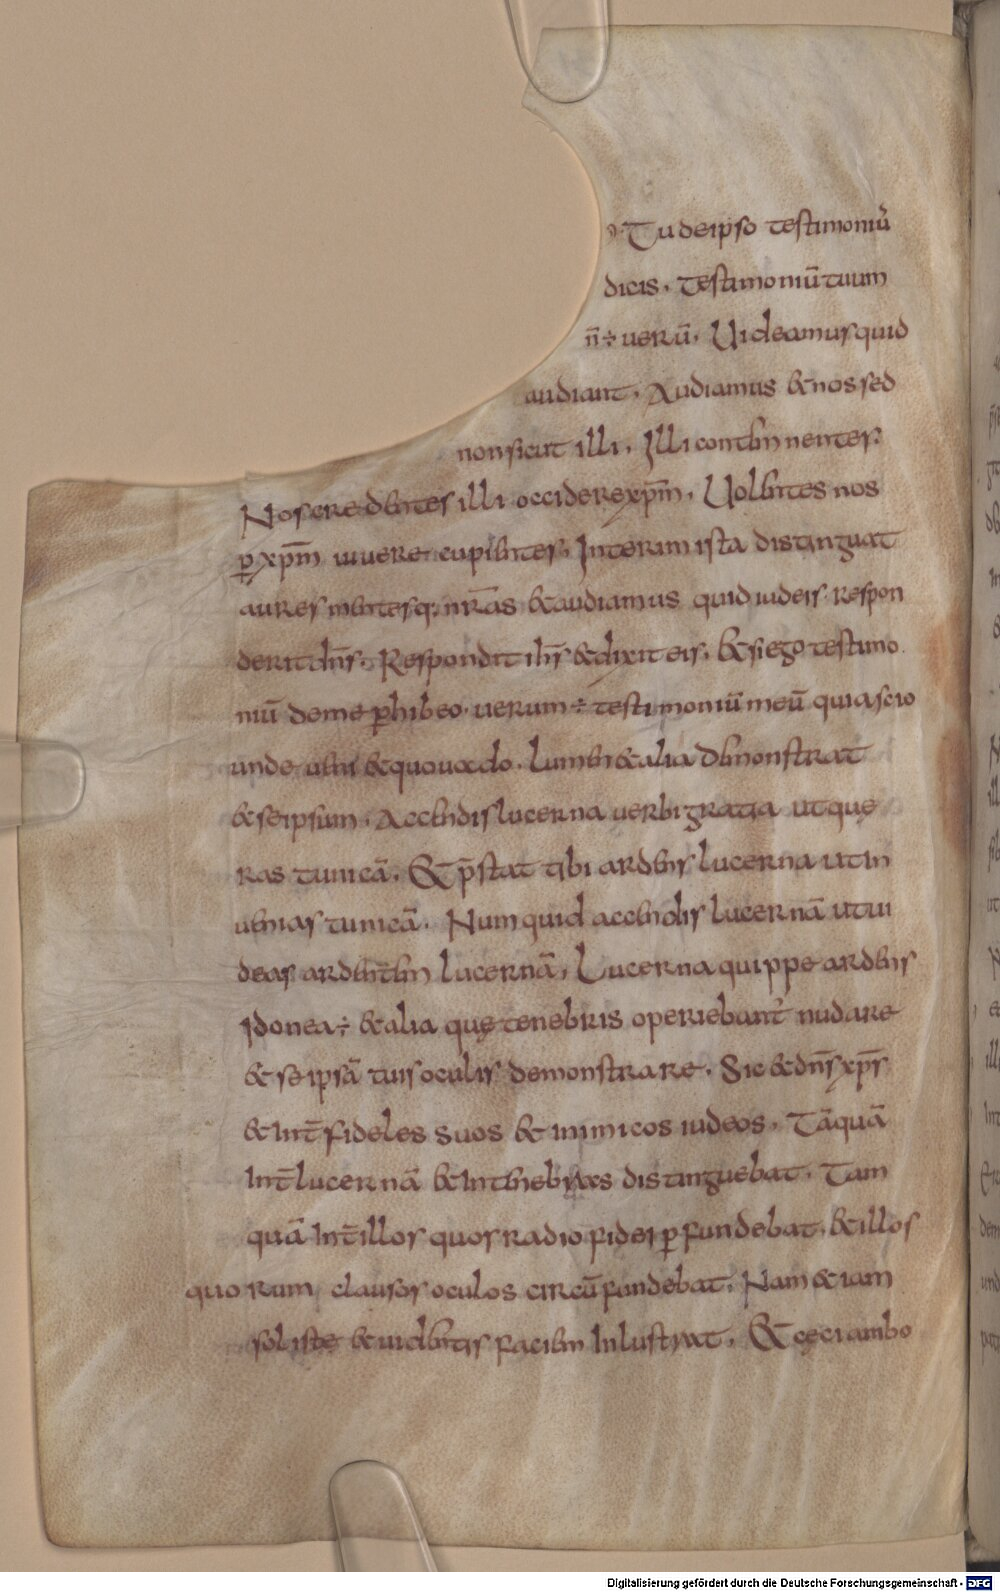 Tu de ipso testimoniū
dicis. testimoniū tuum
n̄ ÷ uerū. Uideamus quid
audiant. Audiamus & nos sed
non sicut illi. Illi contemnentes.
Nos credentes illi occidere xp̄m. Uolentes nos
ꝑ xp̄m uiuere cupientes. Interim ista distinguat
aures mentesq; nr̄as & audiamus quid iudeis respon
derit dn̄s. Respondit ihs̄ & dixit eis. & si ego testimo
niū de me ꝑhibeo. uerum ÷ testimoniū meū quia scio
unde ueni & quo uado. lumen & alia demonstrat
& se ipsum. Accendis lucerna uerbi gratia ut quę
ras tunicā. & p̄stat tibi ardens lucerna ut in
uenias tunicā. Numquid accendis lucernā ut ui
deas ardentem lucernā. Lucerna quippe ardens
idonea ÷ & alia quę tenebris operiebant̄ nudare
& se ipsā tuis oculis demonstrare. Sic & dn̄s xp̄s
& int̄ fideles suos & inimicos iudeos. Tāquā
int̄ lucernā & in tenebras distinguebat. Tam
quā int̄ illos quos radio fidei ꝑfundebat. & illos
quorum clausos oculos circūfundebat. Nam & iam
sol iste & uidentis faciem inlustrat. & cęci ambo
Digitalisierung gefördert durch die Deutsche Forschungsgemeinschaft - DFG